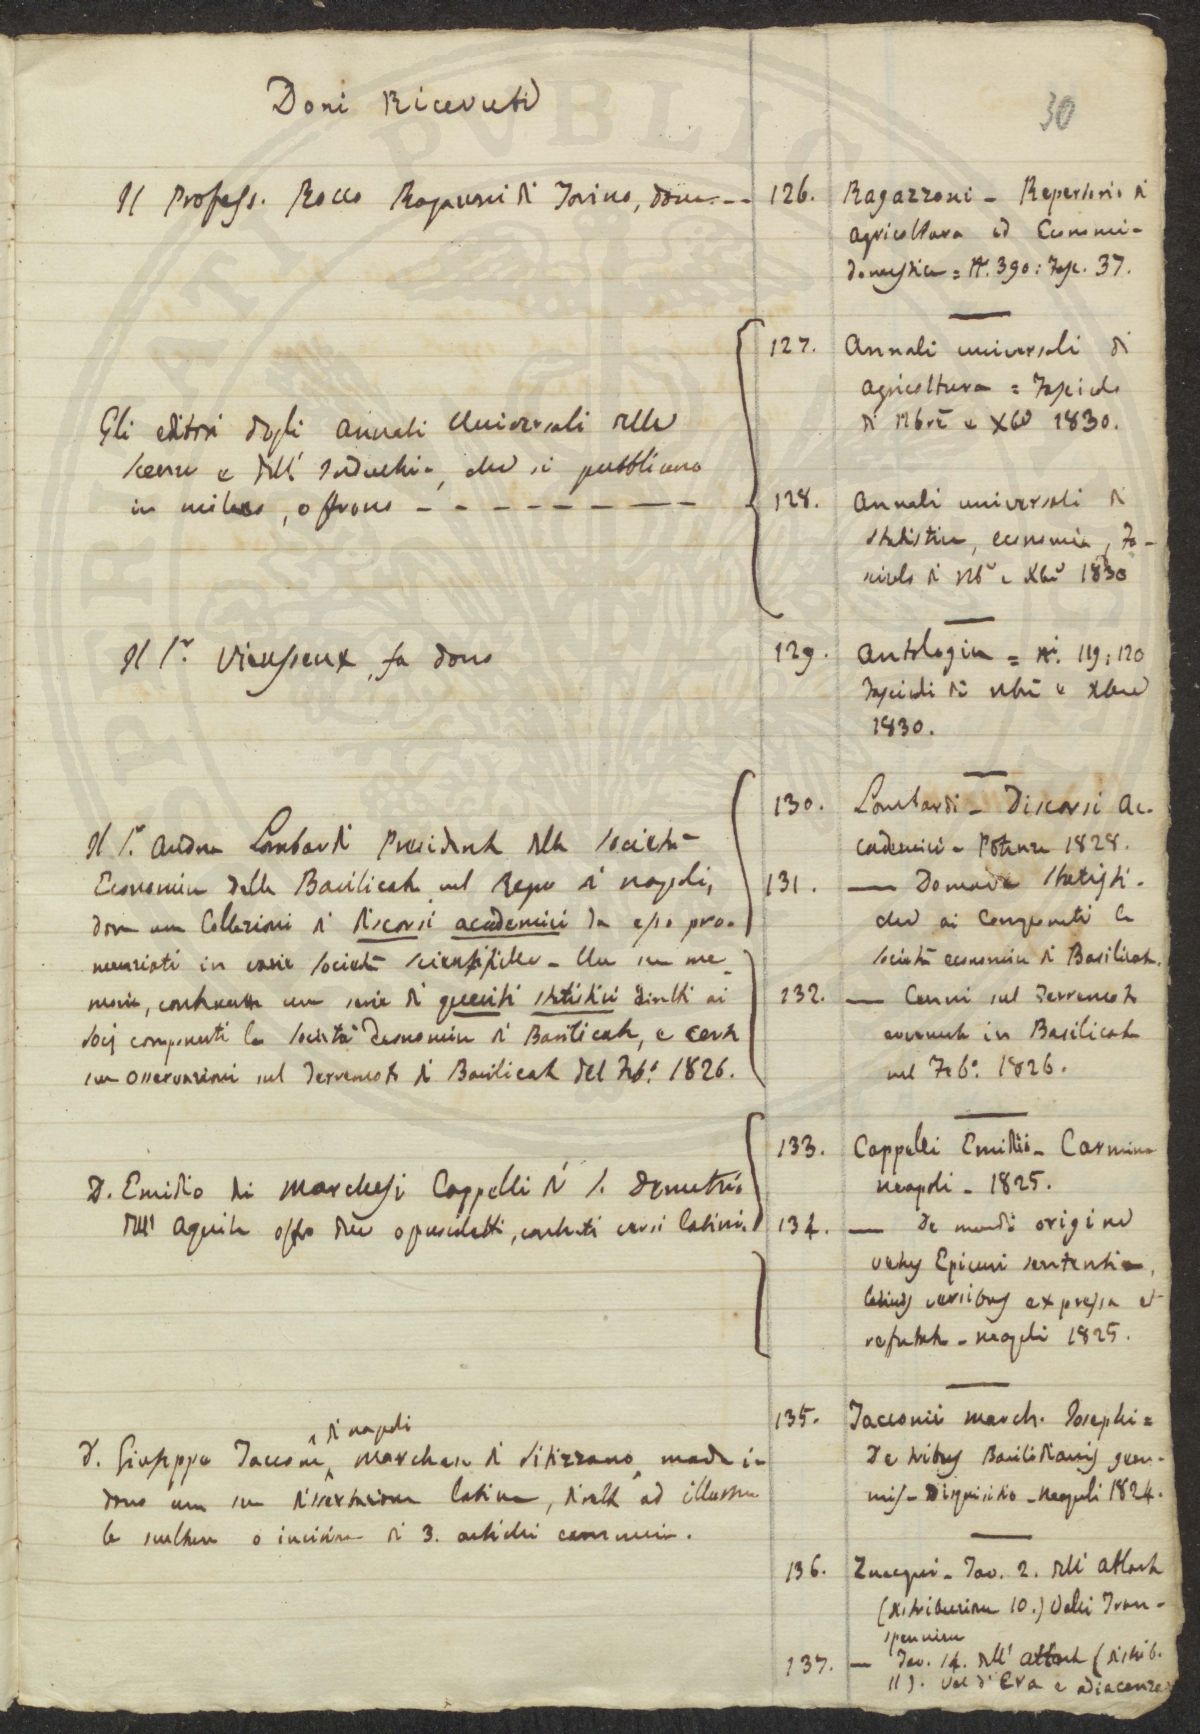 Doni Ricevuti
30
Il Profess. Rocco Ragazzoni di Torino, dona
126. Ragazzoni - Repertorio di
agricoltura ed Economia
domestica = N. 390: Fasc. 37.
Gli editori degli annali Universali delle
Scienze e dell' Industria, che si pubblicano
in milano, offrono
127. Annali universali di
agricoltura = Fascicolo
di Nbre e Xbre 1830.
128. Annali universali di
statistica, economia, Fa-
scicolo di Nbre e Xbre 1830
Il Sr. Vieusseux, fa dono
129. Antologia = Ni. 119, 120
Fascicoli di Nbre e Xbre
1830.
Il Sr. Andrea Lombardi Presidente della Società
Economica della Basilicata nel Regno di napoli,
dona una Collezione di discorsi accademici da esso pro-
nunziati in varie società scientifiche - Una sua me-
moria, contenente una serie di quesiti statistici diretti ai
socj componenti la Società Economica di Basilicata, e certe
sue osservazioni sul Terremoto di Basilicata del Febo. 1826.
130. Lombardi - Discorsi Ac-
cademici - Potenza 1828.
131. — Domande statisti-
che ai Componenti la
società economica di Basilicata.
132. — Cenni sul Terremoto
avvenuto in Basilicata
nel Febo. 1826.
D. Emidio dei Marchesi Cappelli di S. Demetrio
dell' Aquila offre due opuscoletti, contenenti versi latini.
133. Cappelli Emidii - Carmina
Neapoli - 1825.
134. — De mundi origine
vetus Epicuri sententia,
latinis versibus expressa et
refutata - neapoli 1825.
di napoli
D. Giuseppe Taccone, marchese di Sitizzano, manda in
dono una sua dissertazione latina, diretta ad illustrare
la scultura o incisione di 3. antichi
135. Tacconii March. Josephi =
De tribus Basilidianis gem-
mis - Disquisitio - Neapoli 1824.
136. Zuccagni - Tav. 2. dell' atlante
(distribuzione 10.) Valli Tran-
spennine
137. — Tav. 14. dell' atlante (distrib.
11). Val d'Era e adiacenze